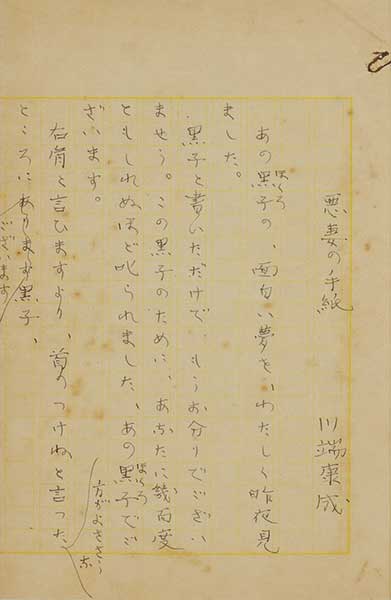 悪妻の手紙 川端康成
あの黒子の、面白い夢を、わたしく昨夜見
ほくろ
ました。
黒子と書いただけで、もうお分りでござい
ませう。この黒子のために、あなたに幾百度
ともしれぬほど叱られました、あの黒子でご
ほくろ
ざいます。
右肩と言ひますより、首のつけねと言つた
方がよささうな
ところにあります黒子、
ございます